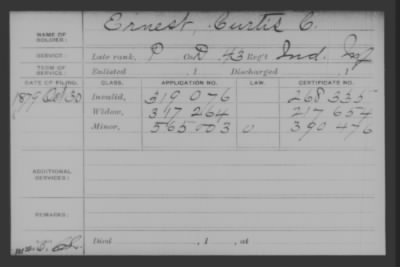 NAME OF SOLDIER: Ernest, Curtis C.
SERVICE: Late rank, P Co. D, 43 Reg't Ind. Inf
TERM OF SERVICE: Enlisted , 1 Discharged , 1
DATE OF FILING. CLASS. APPLICATION NO. LAW. CERTIFICATE NO.
1879 Oct 30 Invalid, 319 076 268 335
Widow, 347 264 217 654
Minor, 565 003 390 476
ADDITIONAL SERVICES:
REMARKS:
Died , 1 , at